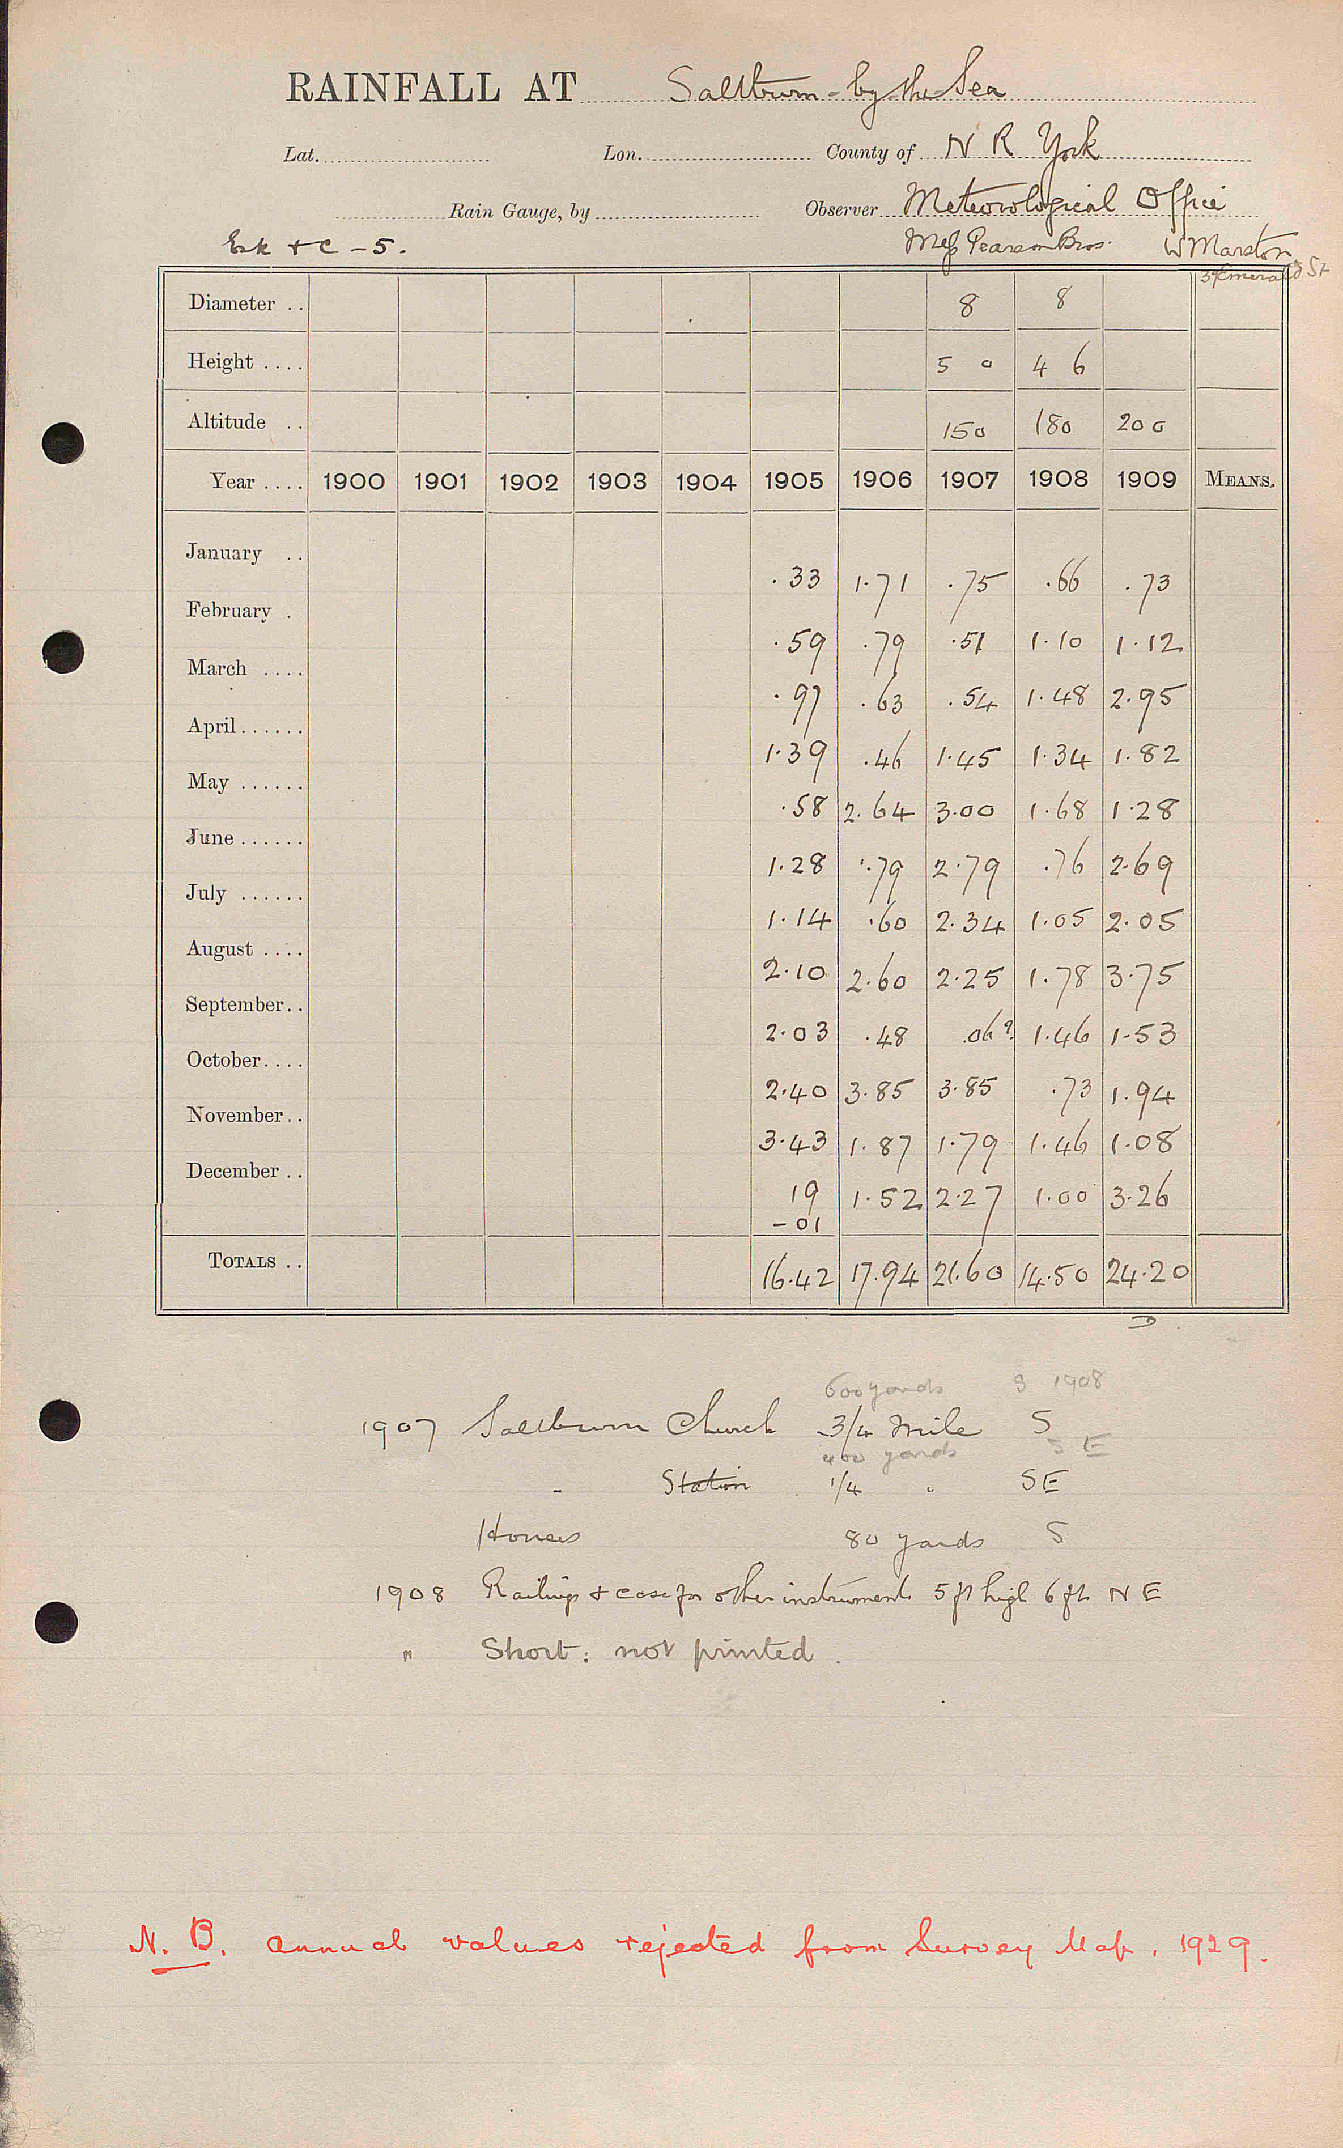 RAINFALL AT Saltburn-by-the-Sea
Lat. Lon. County of N R York
Rain Gauge, by Observer Meteorological Office
Esk & C - 5. Mess Pearson Bros. W Marston
Emerald St
Diameter .. 8 8
Height .... 5 0 4 6
Altitude .. 150 180 200
Year .... 1900 1901 1902 1903 1904 1905 1906 1907 1908 1909 MEANS.
January .. .33 1.71 .75 .66 .73
February . .59 .79 .51 1.10 1.12
March .... .97 .63 .54 1.48 2.95
April...... 1.39 .46 1.45 1.34 1.82
May ...... .58 2.64 3.00 1.68 1.28
June ...... 1.28 .79 2.79 .76 2.69
July ...... 1.14 .60 2.34 1.05 2.05
August .... 2.10 2.60 2.25 1.78 3.75
September.. 2.03 .48 .06? 1.46 1.53
October.... 2.40 3.85 3.85 .73 1.94
November.. 3.43 1.87 1.79 1.46 1.08
December .. 19 1.52 2.27 1.00 3.26
-01
TOTALS .. 16.42 17.94 21.60 14.50 24.20
600 yards S 1908
1907 Saltburn Church 3/4 Mile S
400 yards S E
" Station 1/4 " SE
Houses 80 yards S
1908 Railings & case for other instruments 5 ft high 6 ft N E
" Short: not printed.
N. B. annual values rejected from Survey Map. 1929.